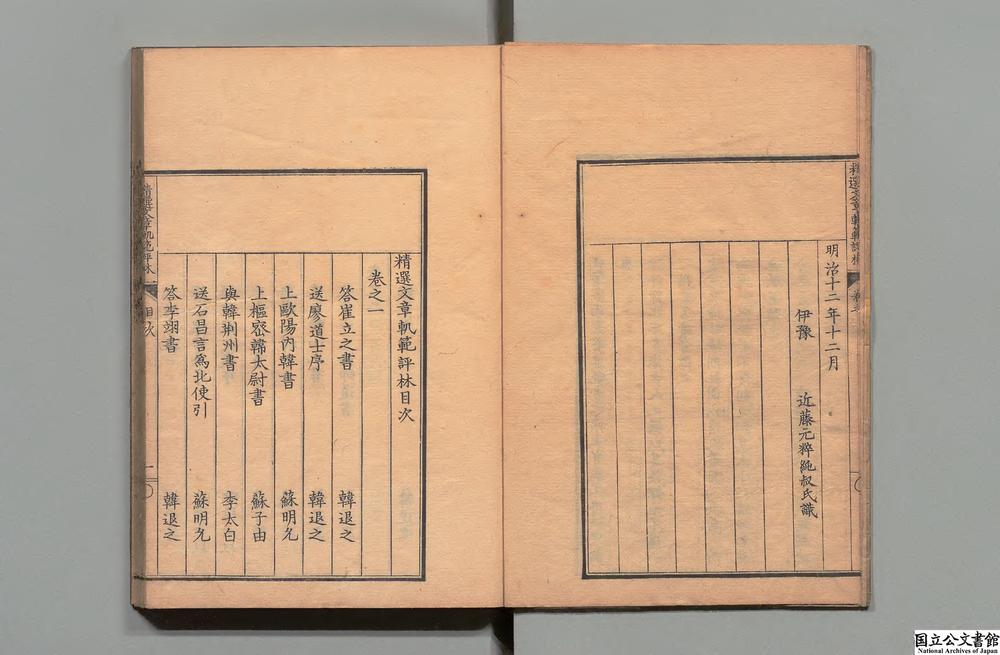 明治十二年十二月
伊豫 近藤元粹純叔氏識
精選文章軌範評林目次
卷之一
答崔立之書 韓退之
送廖道士序 韓退之
上歐陽內韓書 蘇明允
上樞密韓太尉書 蘇子由
與韓荆州書 李太白
送石昌言爲北使引 蘇明允
答李翊書 韓退之
精選文章軌範評林
目次
一
国立公文書館
National Archives of Japan